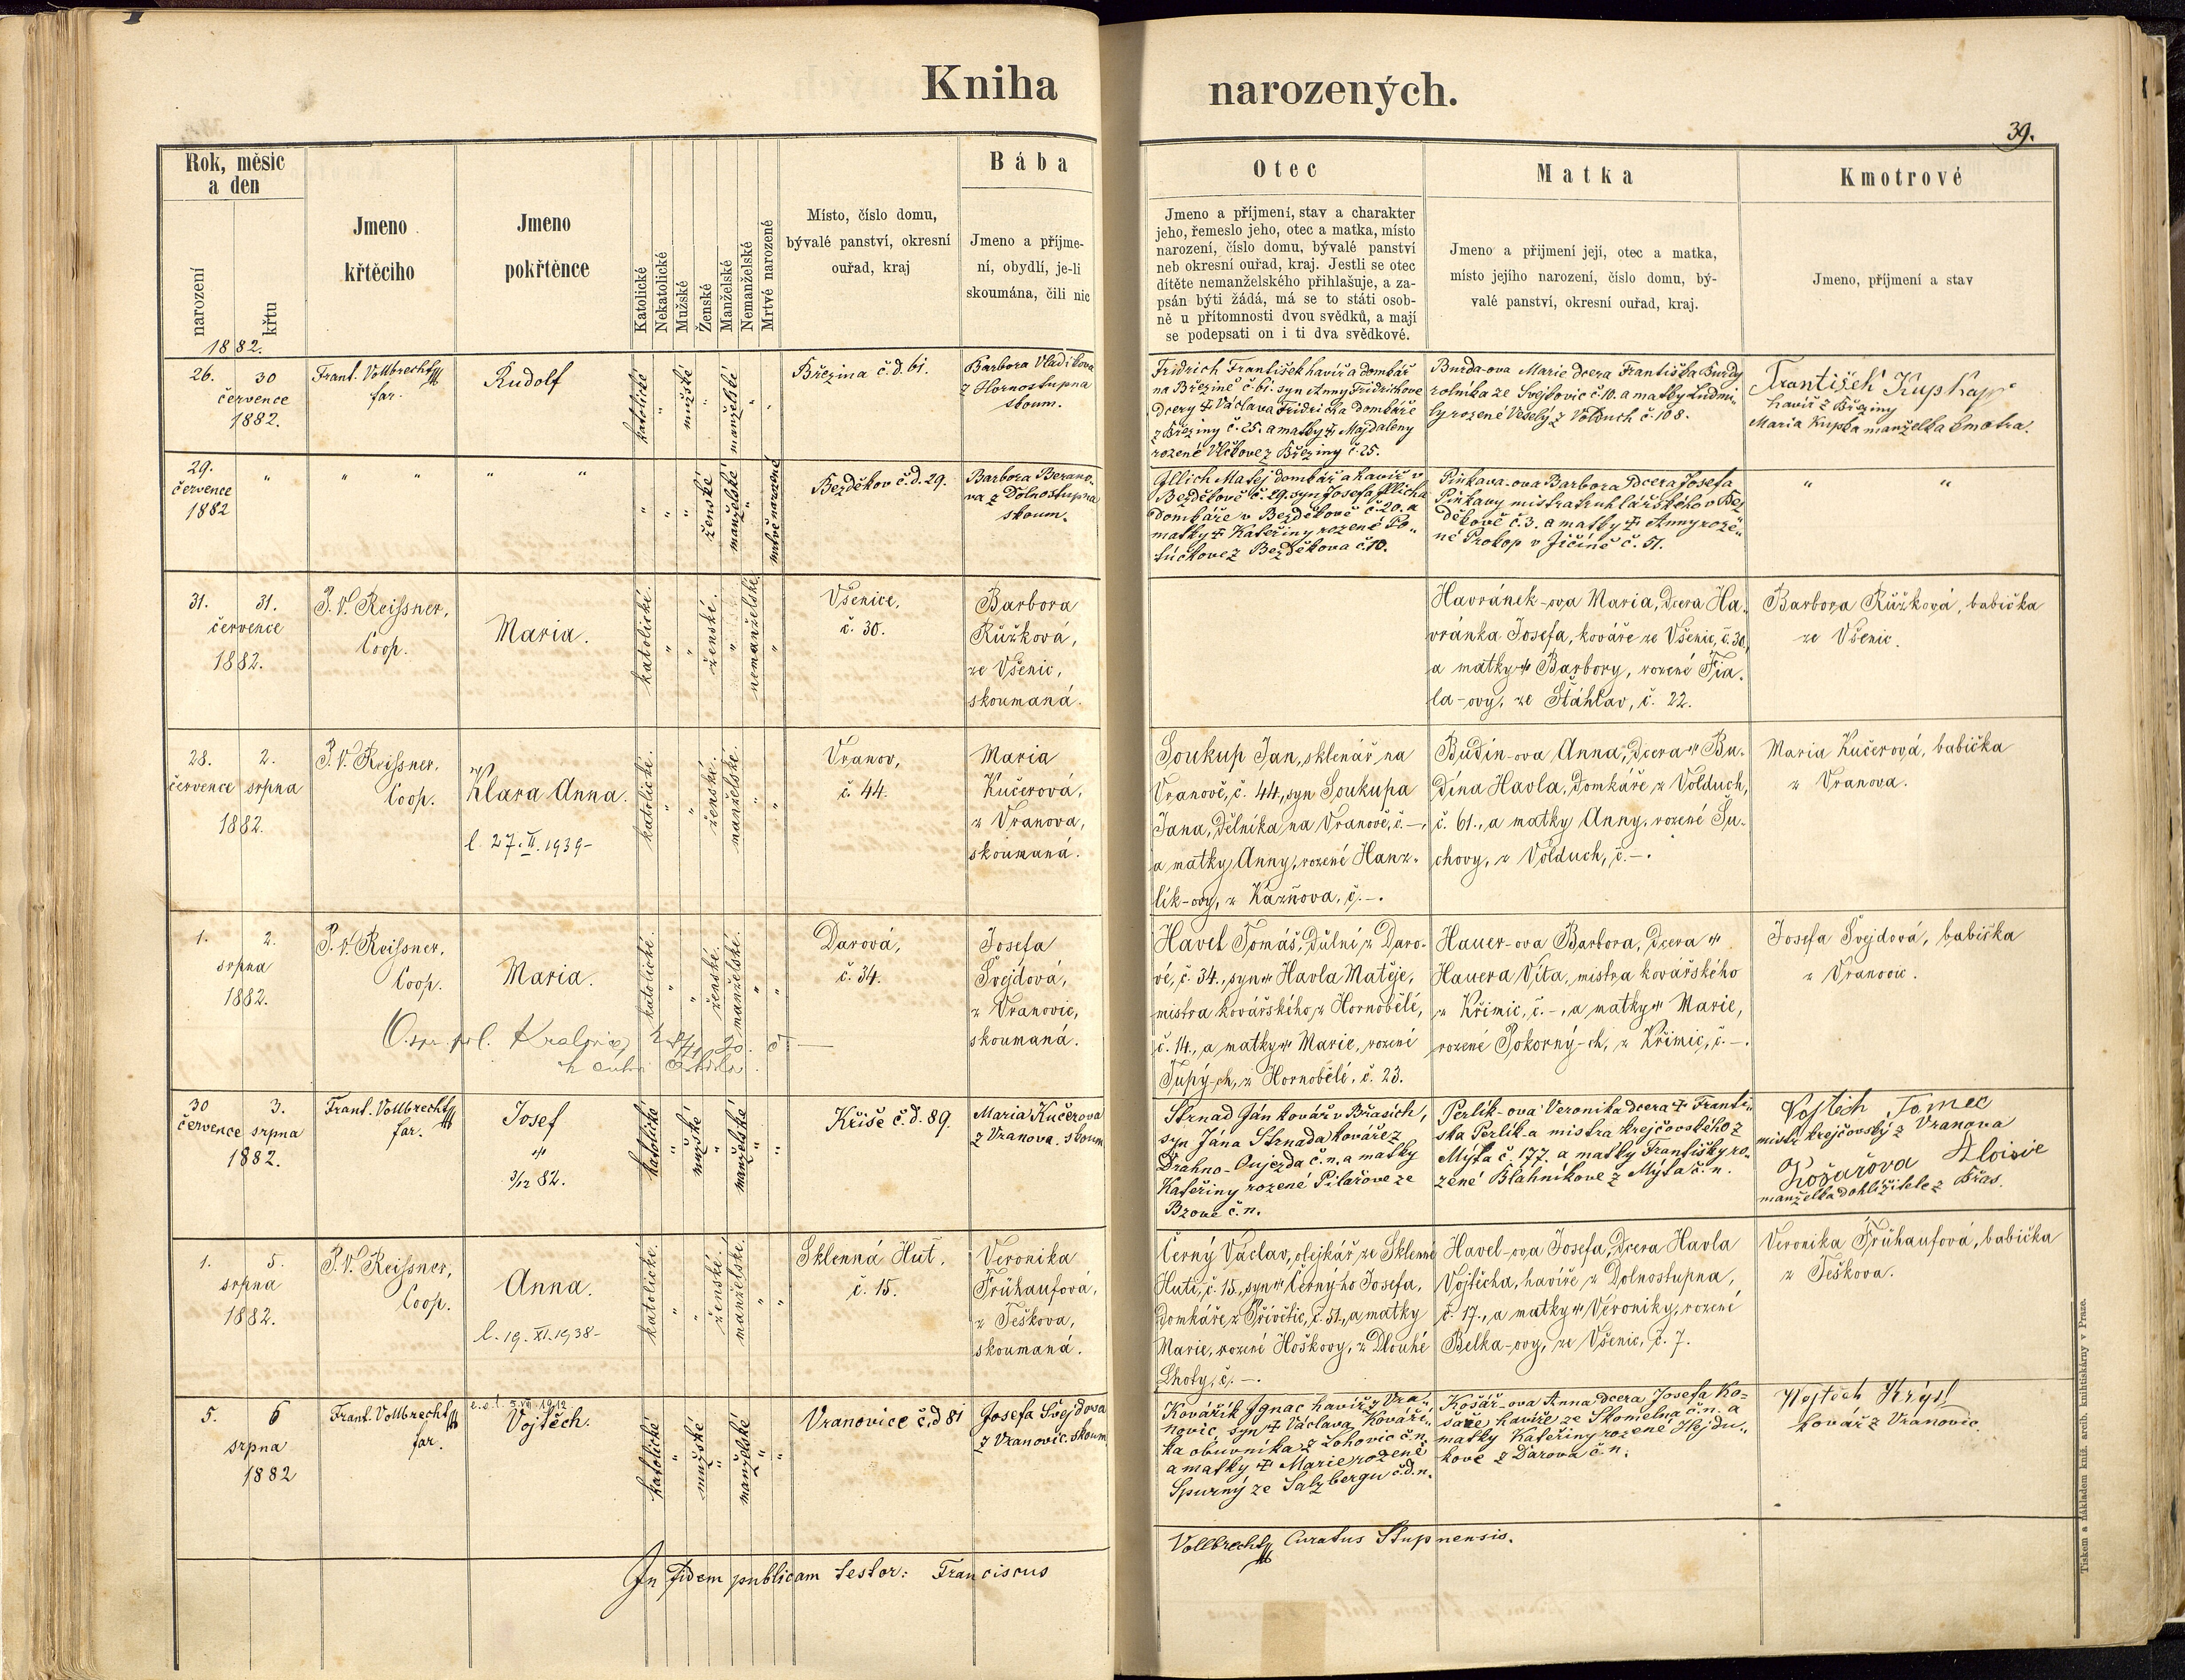 Kniha narozených.
39.
Rok, měsíc
a den
narození
křtu
Jmeno
křtěcího
Jmeno
pokřtěnce
Katolické
Nekatolické
Mužské
Ženské
Manželské
Nemanželské
Mrtvé narozené
Místo, číslo domu,
bývalé panství, okresní
ouřad, kraj
Bába
Jmeno a příjme-
ní, obydlí, je-li
skoumána, čili nic
Otec
Jmeno a příjmení, stav a charakter
jeho, řemeslo jeho, otec a matka, místo
narození, číslo domu, bývalé panství
neb okresní ouřad, kraj. Jestli se otec
dítěte nemanželského přihlašuje, a za-
psán býti žádá, má se to státi osob-
ně u přítomnosti dvou svědků, a mají
se podepsati on i ti dva svědkové.
Matka
Jmeno a přijmení její, otec a matka,
místo jejího narození, číslo domu, bý-
valé panství, okresní ouřad, kraj.
Kmotrové
Jmeno, příjmení a stav
1882.
26. 30
července
1882.
Frant. Vollbrecht
far.
Rudolf
katolické " mužské " manželské " "
Březina č.d. 61.
Barbora Vladikova
z Hornostupna
skoum.
Fridrich František havíř a domkář
na Březině č. 61. syn Anny Fridrichove
dcery † Václava Fridricha domkáře
z Březiny č. 25. a matky † Majdaleny
rozené Vlčkove z Březiny č. 25.
Burda-ova Marie dcera Františka Burdy
rolníka ze Svejkovic č. 10. a matky Ludmi-
ly rozené Veselý z Volduch č. 108.
František Kupka
havíř z Březiny
Maria Kupka manželka kmotra.
29.
července
1882
" " " " "
" " " ženské manželské " mrtvě narozené
Bezděkov č.d. 29.
Barbora Berano-
va z Dolnostupna
skoum.
Illich Matěj domkář a havíř v
Bezděkově č. 29. syn Josefa Illicha
domkáře v Bezděkově č. 20. a
matky † Kateřiny rozené Po-
lúčkove z Bezděkova č. 10.
Piňkava-ova Barbora dcera Josefa
Piňkavy mistra truhlářského v Bez-
děkově č. 3. a matky † Anny roze-
né Prokop v Jičíně č. 51.
" "
31. 31.
července
1882.
P. V. Reissner,
Coop.
Maria.
katolické. " " ženské. " nemanželské. "
Všenice,
č. 30.
Barbora
Růžková,
ze Všenic,
skoumaná.
Havránek-ova Maria, dcera Ha-
vránka Josefa, kováře ze Všenic, č. 30,
a matky † Barbory, rozené Fia-
la-ovy, ze Šťáhlav, č. 22.
Barbora Růžková, babička
ze Všenic.
28. 2.
července srpna
1882.
P. V. Reissner,
Coop.
Klara Anna.
l. 27. II. 1939-
katolické. " " ženské. manželské. " "
Vranov,
č. 44.
Maria
Kučerová,
z Vranova,
skoumaná.
Soukup Jan, sklenář, na
Vranově, č. 44., syn Soukupa
Jana, dělníka na Vranově, č. -,
a matky Anny, rozené Hanz-
lík-ovy, z Kazňova, č. -.
Budín-ova Anna, dcera † Bu-
dína Havla, domkáře z Volduch,
č. 61., a matky Anny, rozené Šu-
chovy, z Volduch, č. -.
Maria Kučerová, babička
z Vranova.
1. 2.
srpna
1882.
P. V. Reissner,
Coop.
Maria.
katolické. " " ženské. manželské. " "
Darová,
č. 34.
Josefa
Švejdová,
z Vranovic,
skoumaná.
Havel Tomáš, důlní z Daro-
vé, č. 34., syn † Havla Matěje,
mistra kovářského, z Hornobělé,
č. 14., a matky † Marie, rozené
Tupý-ch, z Hornobělé, č. 23.
Hauer-ova Barbora, dcera †
Hauera Víta, mistra kovářského
z Křimic, č. -, a matky † Marie,
rozené Pokorný-ch, z Křimic, č. -.
Josefa Švejdová, babička
z Vranovic.
30 3.
července srpna
1882.
Frant. Vollbrecht
far.
Josef
†
3/12 82.
katolické " mužské " manželské " "
Kříše č.d. 89.
Maria Kučerova
z Vranova. skoum
Strnad Ján kovář v Břasích,
syn Jána Strnada kováře z
Drahno-Oujezda č.n. a matky
Kateřiny rozené Pilařove ze
Bzove č.n.
Perlík-ova Veronika dcera † Franti-
ska Perlík-a mistra krejčovského z
Mýta č. 177. a matky Františky ro-
zené Bláhníkove z Mýta č.n.
Vojtěch Tomec
mistr krejčovský z Vranova
Košařova Aloisie
manželka dohližitele z Břas.
1. 5.
srpna
1882.
P. V. Reissner,
Coop.
Anna.
l. 19. XI. 1938-
katolické. " " ženské. manželské. " "
Sklenná Huť,
č. 15.
Veronika
Frühaufová,
z Teškova,
skoumaná.
Černý Václav, olejkář, ze Sklenné
Huti, č. 15., syn † Černýho Josefa,
domkáře z Přívětic, č. 51., a matky
Marie, rozené Hoškovy, z Dlouhé
Lhoty, č. -.
Havel-ova Josefa, dcera Havla
Vojtěcha, havíře z Dolnostupna,
č. 17., a matky † Veroniky, rozené
Belka-ovy, ze Všenic, č. 7.
Veronika Frühaufová, babička
z Teškova.
5. 6
srpna
1882
Frant. Vollbrecht
far.
Vojtěch.
katolické " mužské " manželské " "
Vranovice č.d 81
Josefa Švejdova
z Vranovic. skoum
Kovářík Ignac havíř z Vra-
novic, syn † Václava Kováří-
ka obuvníka z Lohovic č.n.
a matky † Marie rozené
Spurný ze Salzbergu č.d.n.
Košář-ova Anna dcera Josefa Ko-
šaře havíře ze Skomelna č.n. a
matky Kateřiny rozené Hejdu-
kove z Darova č.n.
Vojtěch Krýsl
kovář z Vranovic
In fidem publicam testor: Franciscus Vollbrecht Curatus Stupnensis.
Tiskem a nákladem kníž. arcib. knihtiskárny v Praze.